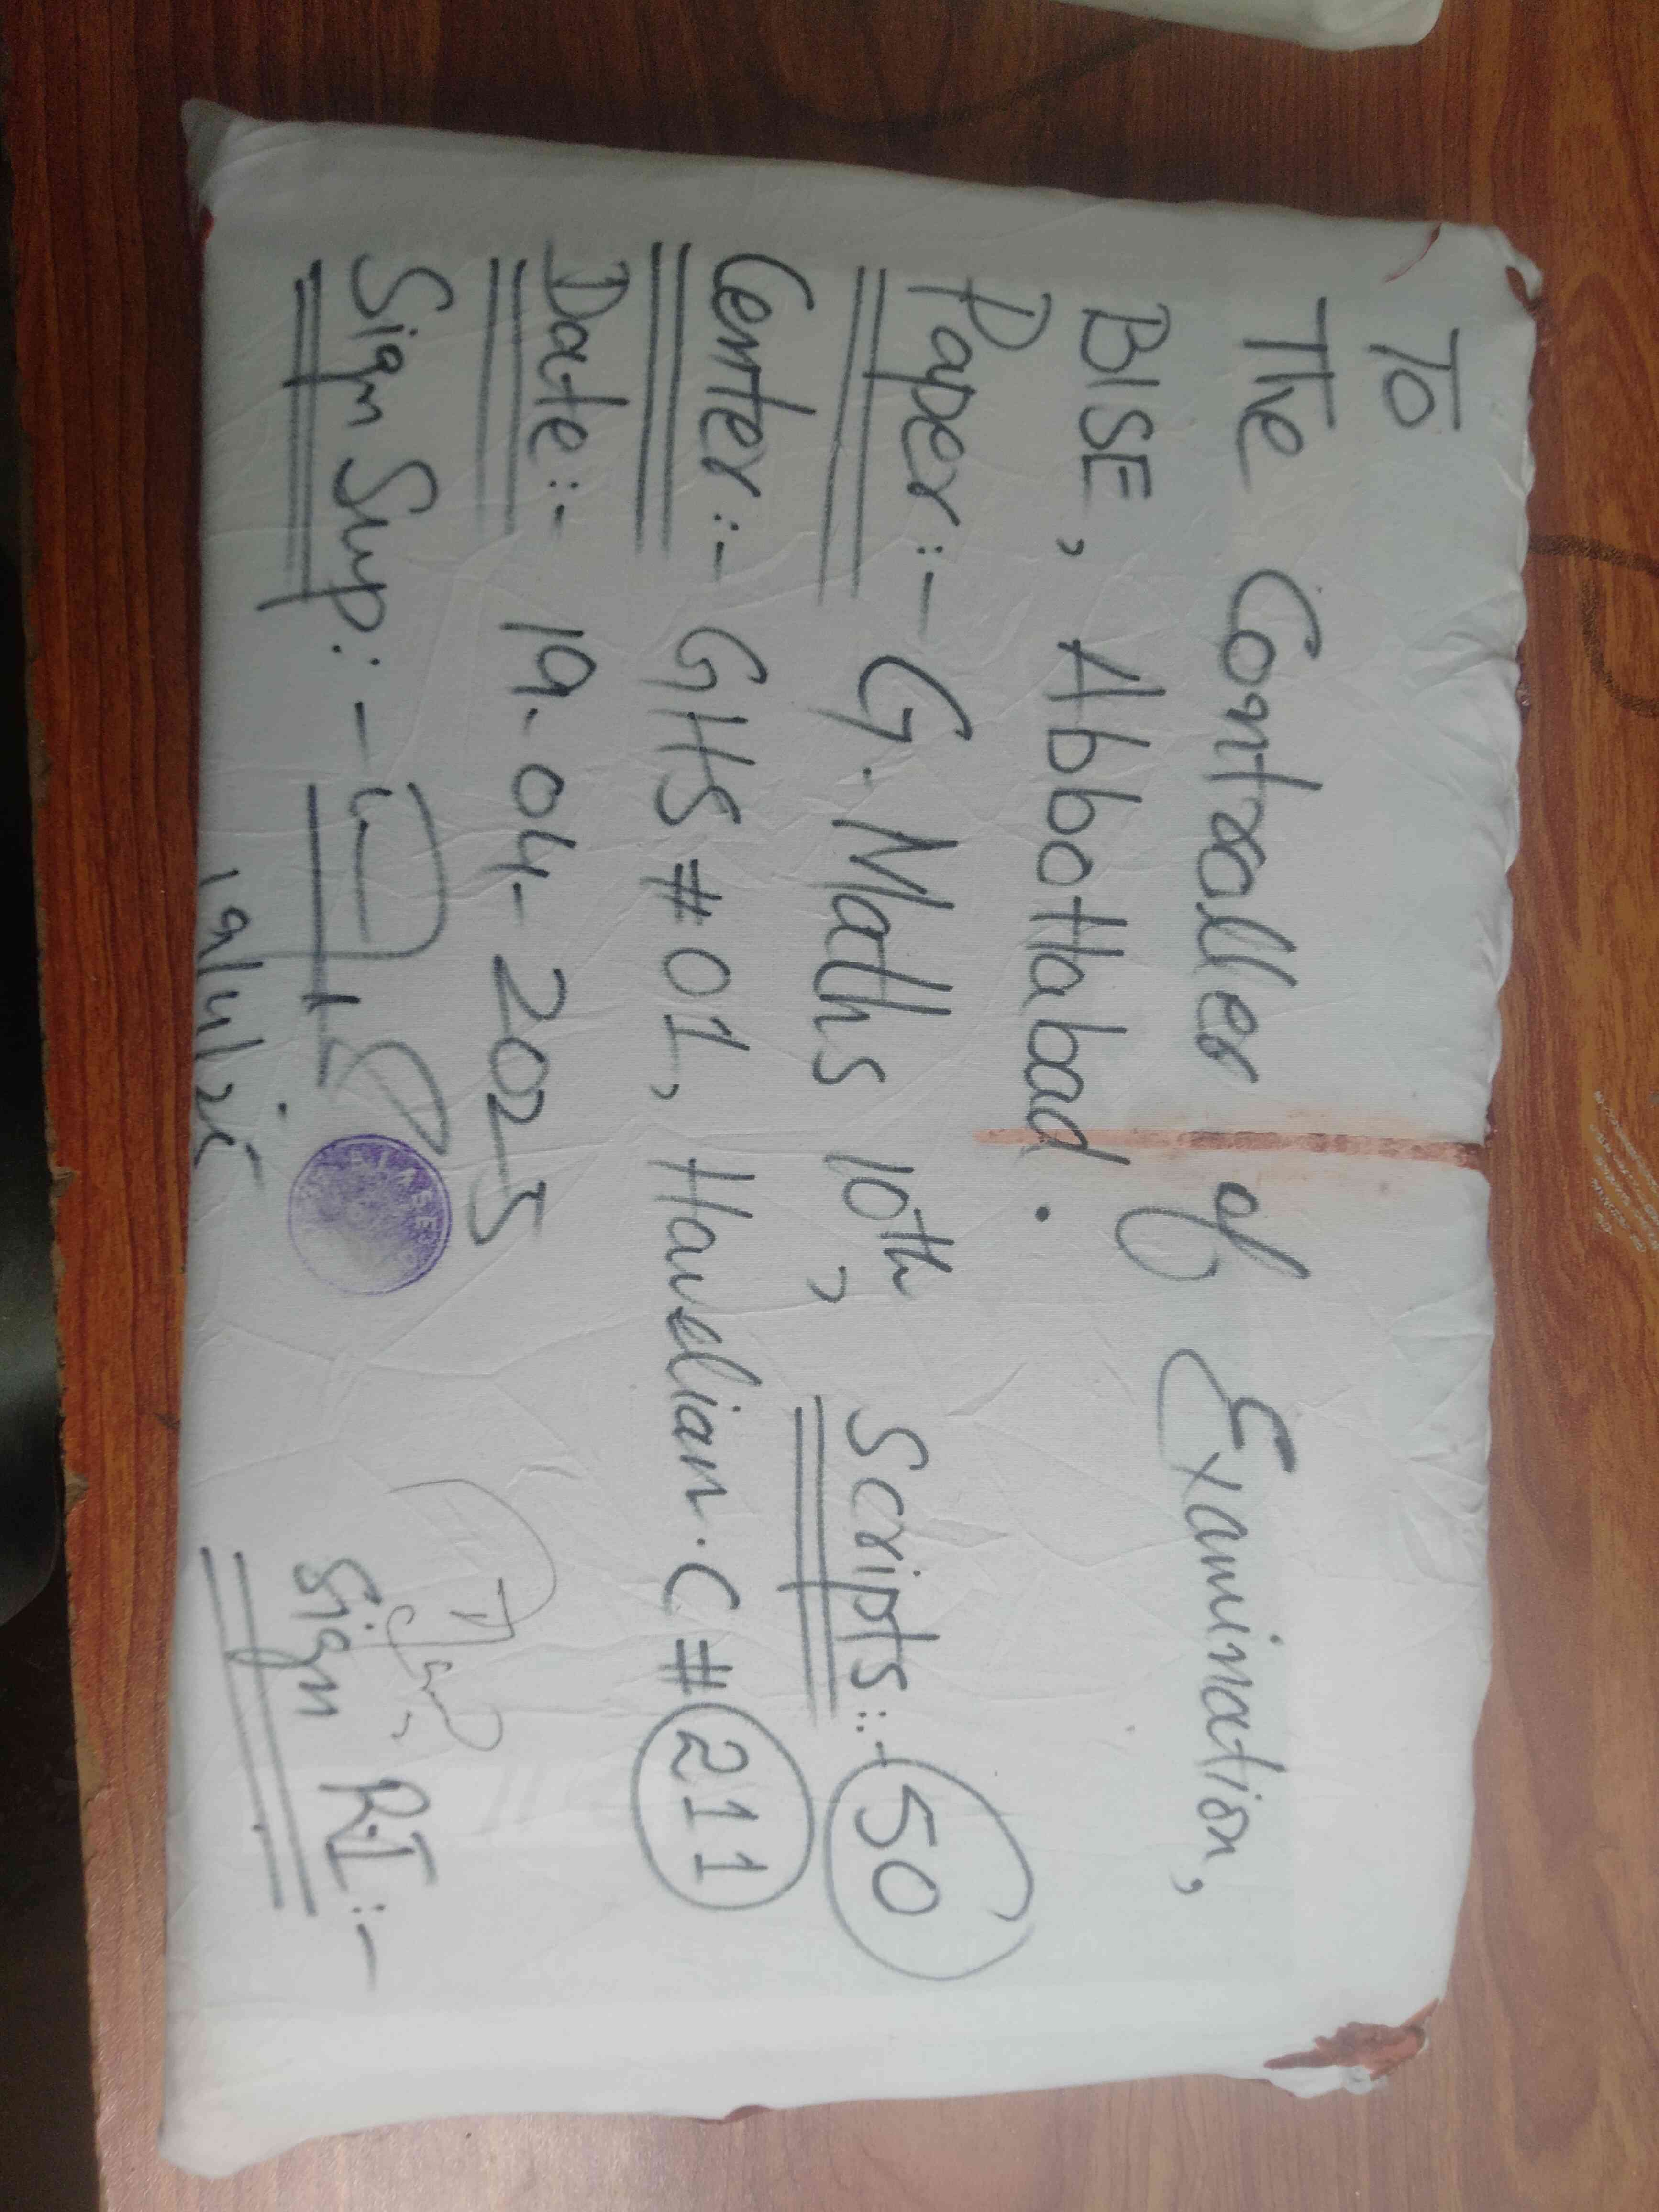 To
The Controller of Examination,
BISE, Abbottabad.
Paper::- G. Maths 10th, Scripts::- 50
Center::- GHS # 01, Havelian. C # 211
Date::- 19-04-2025
Sign Sup::-
19/4/25
Sign R.I::-